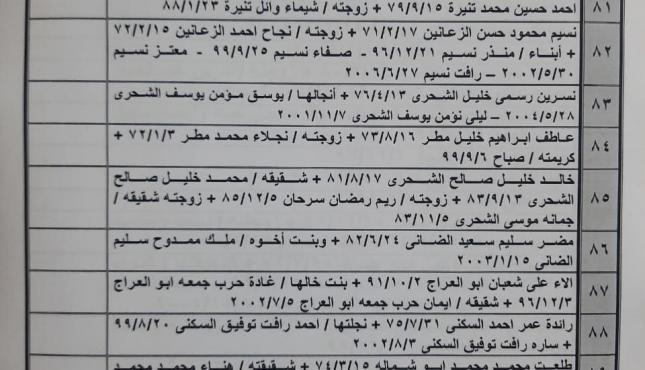 ٨١ احمد حسين محمد تنيرة ٧٩/٩/١٥ + زوجته / شيماء وائل تنيرة ٨٨/١/٢٣
٨٢ نسيم محمود حسن الزعانين ٧١/٢/١٧ + زوجته / نجاح احمد الزعانين ٧٢/٢/١٥
+ أبناء / منذر نسيم ٩٦/١٢/٢١ - صفاء نسيم ٩٩/٩/٢٥ - معتز نسيم
٢٠٠٢/٥/٣٠ – رافت نسيم ٢٠٠٦/٦/٢٧
٨٣ نسرين رسمى خليل الشحرى ٧٦/٤/١٣ + أنجالها / يوسق مؤمن يوسف الشحرى
٢٠٠٤/٥/٢٨ – ليلى نؤمن يوسف الشحرى ٢٠٠١/١١/٧
٨٤ عاطف ابراهيم خليل مطر ٧٣/٨/١٦ + زوجته / نجلاء محمد مطر ٧٢/١/٣ +
كريمته / صباح ٩٩/٩/٦
٨٥ خالد خليل صالح الشحرى ٨١/٨/١٧ + شقيقه / محمد خليل صالح
الشحرى ٨٣/٩/١٣ + زوجته / ريم رمضان سرحان ٨٥/١٢/٥ + زوجته شقيقه /
جمانه موسى الشحرى ٨٣/١١/٥
٨٦ مضر سليم سعيد الضانى ٨٢/٦/٢٤ + وبنت أخوه / ملك ممدوح سليم
الضانى ٢٠٠٣/١/١٥
٨٧ الاء على شعبان ابو العراج ٩١/١٠/٢ + بنت خالها / غادة حرب جمعه ابو العراج
٩٦/١٢/٣ + شقيقه / ايمان حرب جمعه ابو العراج ٢٠٠٢/٧/٥
٨٨ رائدة عمر احمد السكنى ٧٥/٧/٣١ + نجلتها / احمد رافت توفيق السكنى ٩٩/٨/٢٠
+ ساره رافت توفيق السكنى ٢٠٠٢/٨/٣
طلعت محمد محمد ابو شماله ٧٤/٣/١٥ + شقيقته / هناء محمد محمد